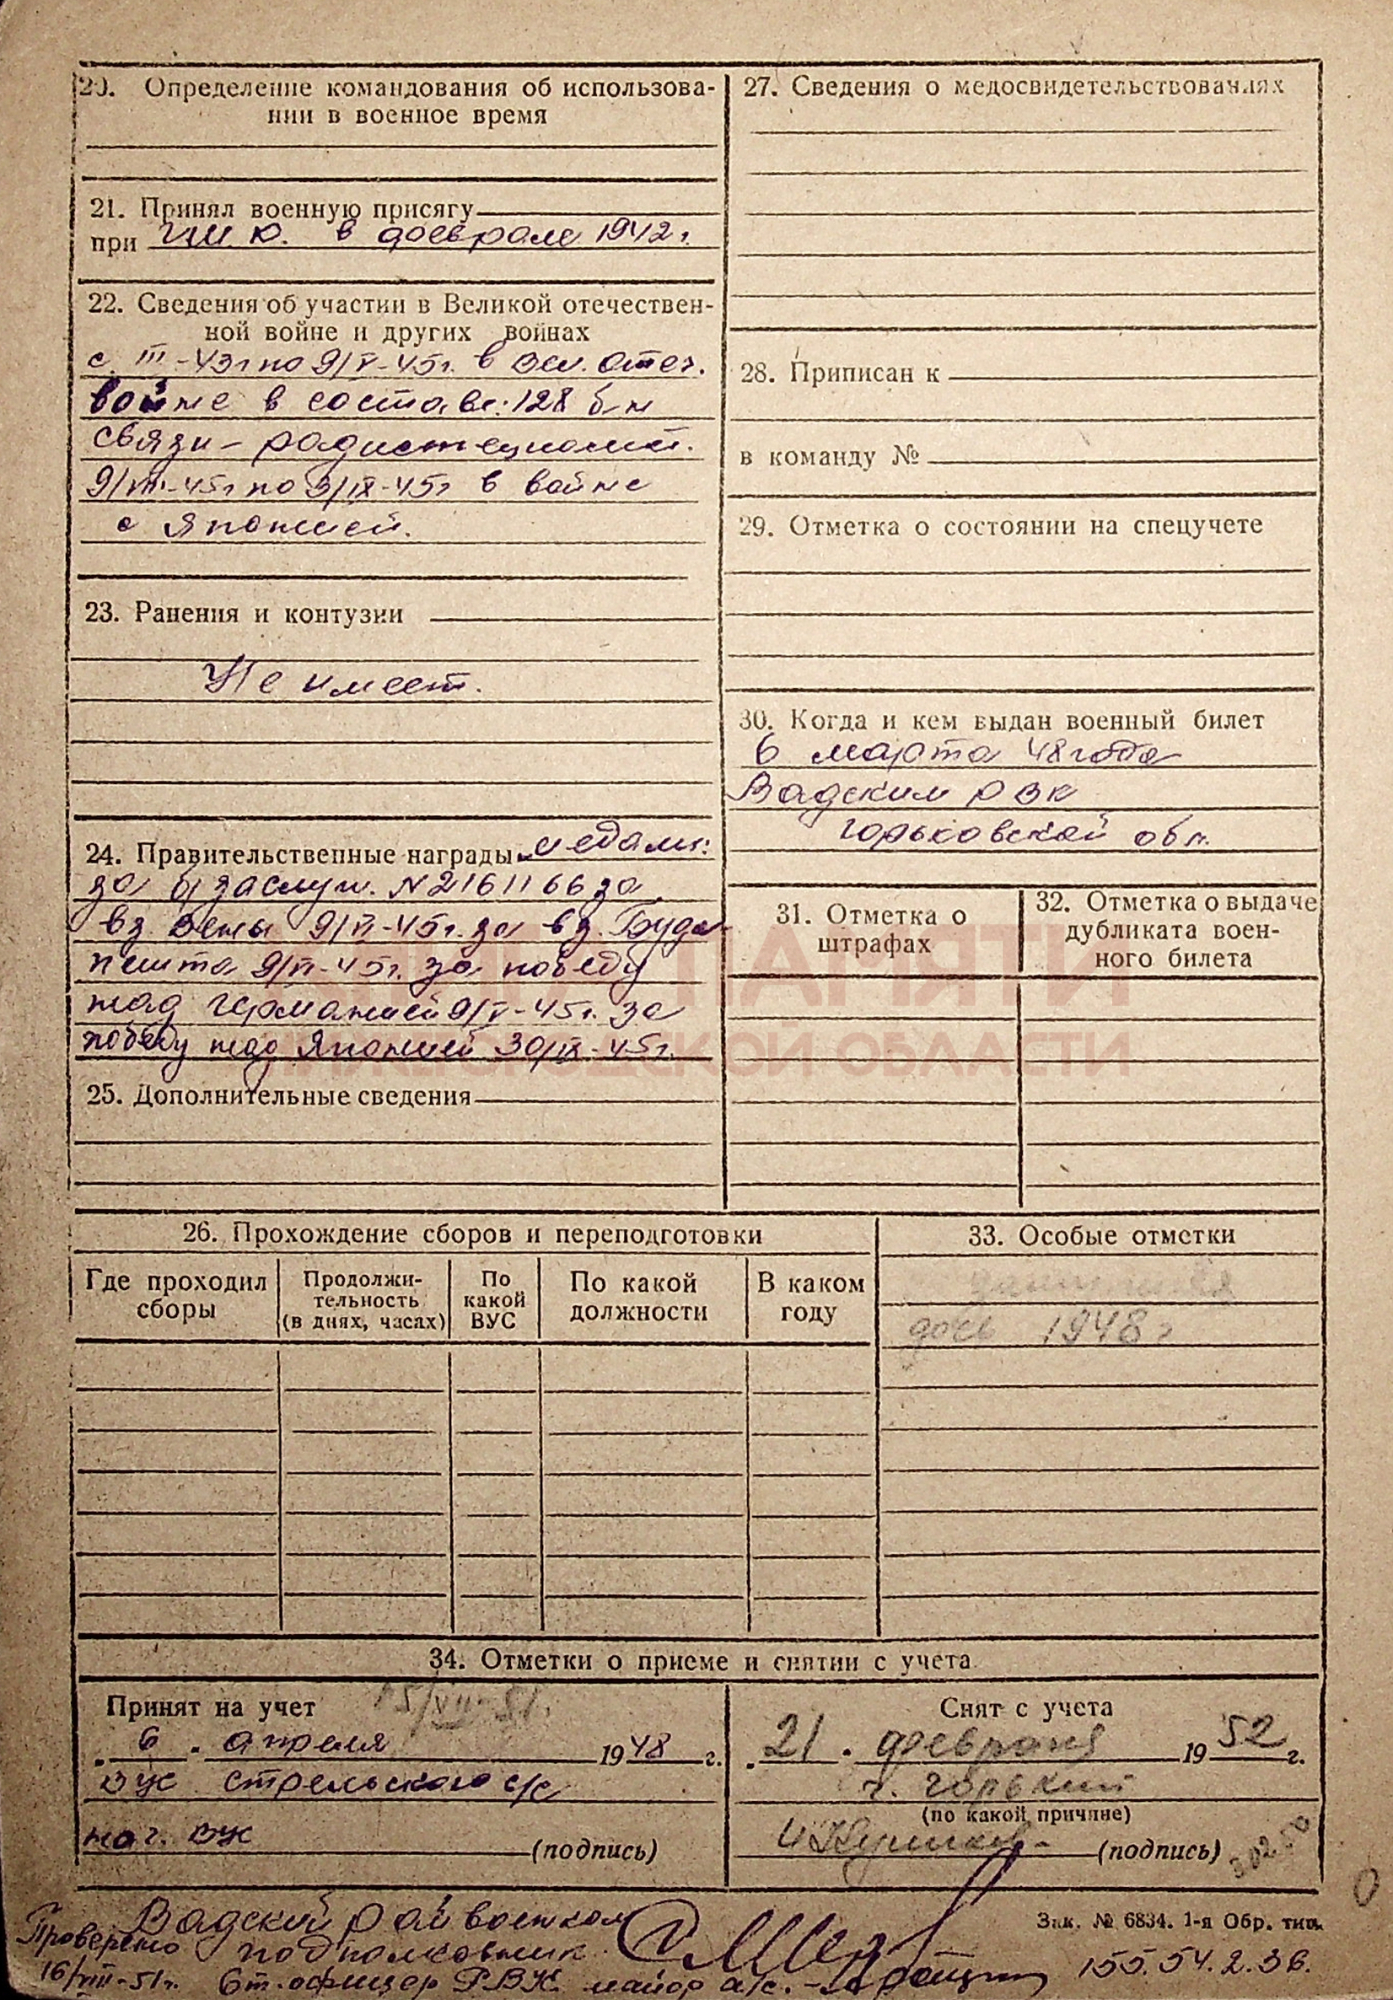 20. Определение командования об использова-
нии в военное время
21. Принял военную присягу
при в феврале 1942 г.
22. Сведения об участии в Великой отечествен-
ной войне и других войнах
с III-43 г по 9/V-45 г. в Вел. отеч.
войне в составе: 128 б-н
связи-
9/VIII-45 г по 3/IX-45 г в войне
с Японией.
23. Ранения и контузии
Не имеет.
24. Правительственные награды медали:
за б/заслуги. N2161166 за
вз. Вены 9/VI-45 г. за вз. Буда-
пешта 9/VI-45 г. за победу
над Германией 9/V-45 г. за
победу над Японией 30/IX-45 г.
25. Дополнительные сведения
27. Сведения о медосвидетельствованиях
28. Приписан к
в команду №
29. Отметка о состоянии на спецучете
30. Когда и кем выдан военный билет
6 марта 48 года
Вадским РВК
Горьковской обл.
31. Отметка о
штрафах
32. Отметка о выдаче
дубликата воен-
ного билета
ПАМЯТИ
НИЖЕГОРОДСКОЙ ОБЛАСТИ
26. Прохождение сборов и переподготовки
Где проходил
сборы
Продолжи-
тельность
(в днях, часах)
По
какой
ВУС
По какой
должности
В каком
году
33. Особые отметки
дочь 1948 г
34. Отметки о приеме и снятии с учета
Принят на учет 15/VIII-51.
„6„ апреля 1948 г.
ВУС Стрельского с/с
нач. ВУС
(подпись)
Снят с учета
„21„ февраля 1952 г.
г. Горький
(по какой причине)
(подпись)
Зак. № 6834. 1-я Обр. тип.
Вадский райвоенком
Проверено подполковник
16/VIII-51 г. Ст. офицер РВК майор а/с.
155.54.2.36.